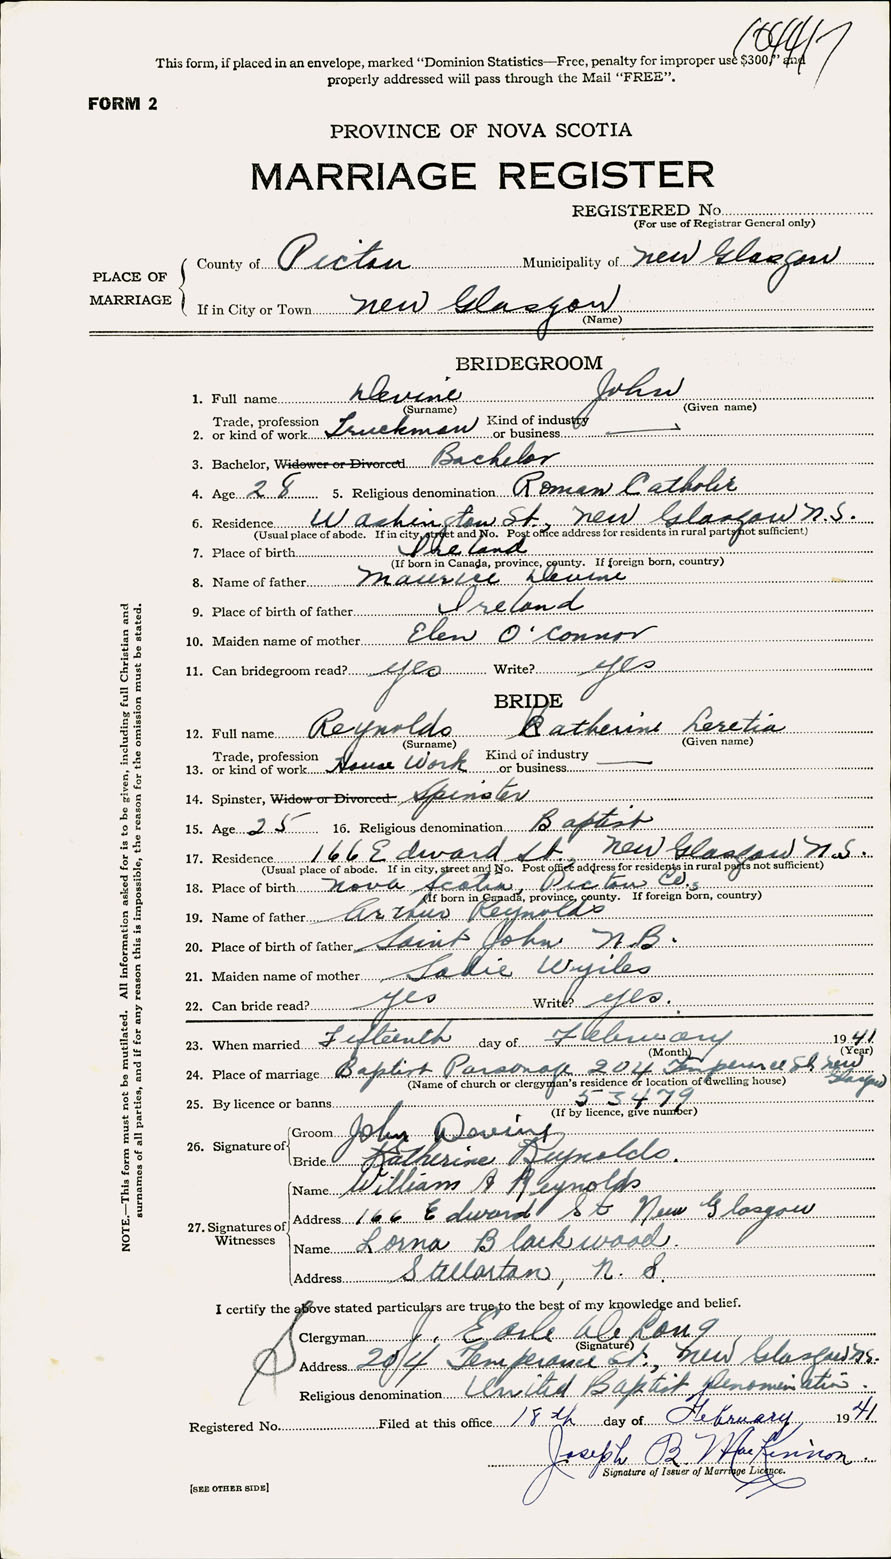 This form, if placed in an envelope, marked "Dominion Statistics—Free, penalty for improper use $300," and
properly addressed will pass through the Mail "FREE".
FORM 2
PROVINCE OF NOVA SCOTIA
MARRIAGE REGISTER
REGISTERED No.
(For use of Registrar General only)
PLACE OF MARRIAGE
County of Pictou Municipality of New Glasgow
If in City or Town New Glasgow
(Name)
BRIDEGROOM
1. Full name Devine John
(Surname) (Given name)
2. Trade, profession or kind of work Truckman Kind of industry or business —
3. Bachelor, Widower or Divorced Bachelor
4. Age 28 5. Religious denomination Roman Catholic
6. Residence Washington St., New Glasgow N.S.
(Usual place of abode. If in city, street and No. Post office address for residents in rural parts not sufficient)
7. Place of birth Ireland
(If born in Canada, province, county. If foreign born, country)
8. Name of father Maurice Devine
9. Place of birth of father Ireland
10. Maiden name of mother Elen O'Connor
11. Can bridegroom read? yes Write? yes
BRIDE
12. Full name Reynolds Katherine Leretia
(Surname) (Given name)
13. Trade, profession or kind of work House Work Kind of industry or business —
14. Spinster, Widow or Divorced Spinster
15. Age 25 16. Religious denomination Baptist
17. Residence 166 Edward St., New Glasgow N.S.
(Usual place of abode. If in city, street and No. Post office address for residents in rural parts not sufficient)
18. Place of birth Nova Scotia, Pictou Co.
(If born in Canada, province, county. If foreign born, country)
19. Name of father Arthur Reynolds
20. Place of birth of father Saint John N.B.
21. Maiden name of mother Sadie Wyiles
22. Can bride read? yes Write? yes.
23. When married Fifteenth day of February 1941
(Month) (Year)
24. Place of marriage Baptist Parsonage 204 Temperance St. New Glasgow
(Name of church or clergyman's residence or location of dwelling house)
25. By licence or banns 53479
(If by licence, give number)
26. Signature of
Groom John Devine
Bride Katherine Reynolds.
27. Signatures of Witnesses
Name William A Reynolds
Address 166 Edward St New Glasgow
Name Lorna Blackwood.
Address Stellarton, N. S.
I certify the above stated particulars are true to the best of my knowledge and belief.
Clergyman J. Earle De Long
(Signature)
Address 204 Temperance St., New Glasgow N.S.
Religious denomination United Baptist Denomination.
Registered No. Filed at this office 18th day of February 1941
Joseph B. MacKinnon.
Signature of Issuer of Marriage Licence.
[SEE OTHER SIDE]
NOTE.—This form must not be mutilated. All Information asked for is to be given, including full Christian and
surnames of all parties, and if for any reason this is impossible, the reason for the omission must be stated.